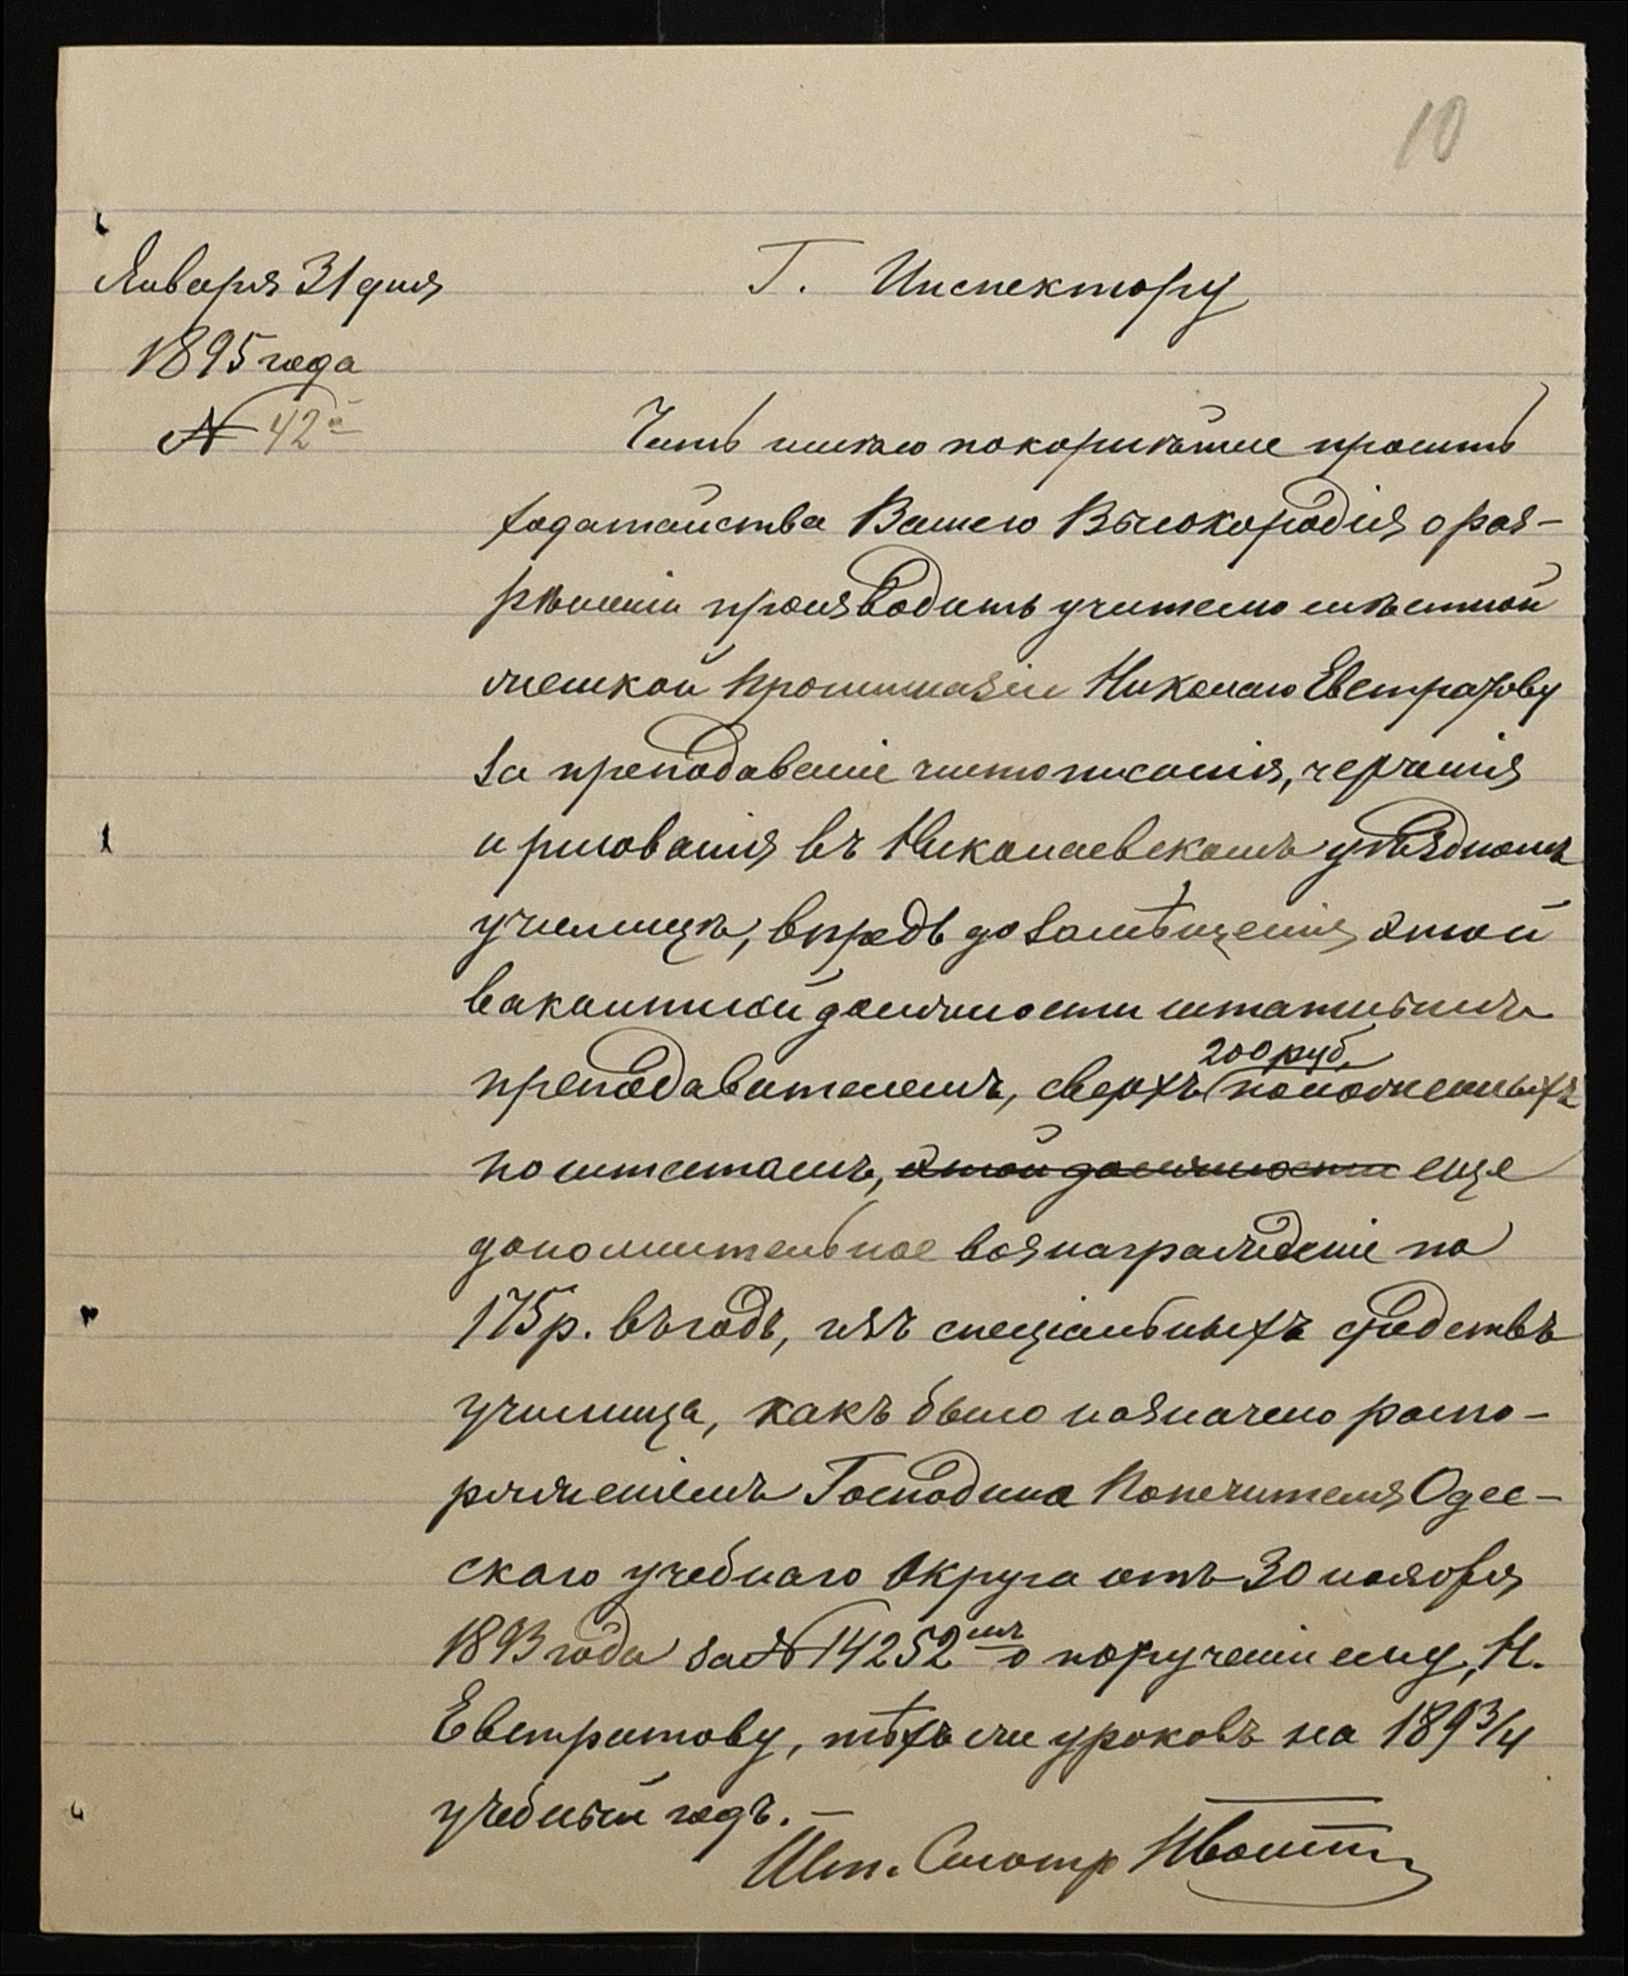 10
Января 31 дня
1895 года
№ 42й
Г. Инспектору
Честь имѣю покорнѣйше просить
ходатайства Вашего Высокородія о раз-
рѣшеніи производить учителю мѣстной
мужской прогимназіи Николаю Евстратову
за преподаваніе чистописанія, черченія
и рисованія въ Николаевскомъ уѣздномъ
училищѣ, впредь до замѣщенія этой
вакантной должности штатнымъ
преподавателемъ, сверхъ 200 руб. положенныхъ
по штатамъ, этой должности еще
дополнительное вознагражденіе по
175 р. въ годъ, изъ спеціальныхъ средствъ
училища, какъ было назначено распо-
ряженіемъ Господина Попечителя Одес-
скаго учебнаго Округа отъ 30 ноября
1893 года за № 14252мъ о порученіи ему, Н.
Евстратову, тѣхъ же уроковъ на 1893/4
учебный годъ. —
Шт. Смотр